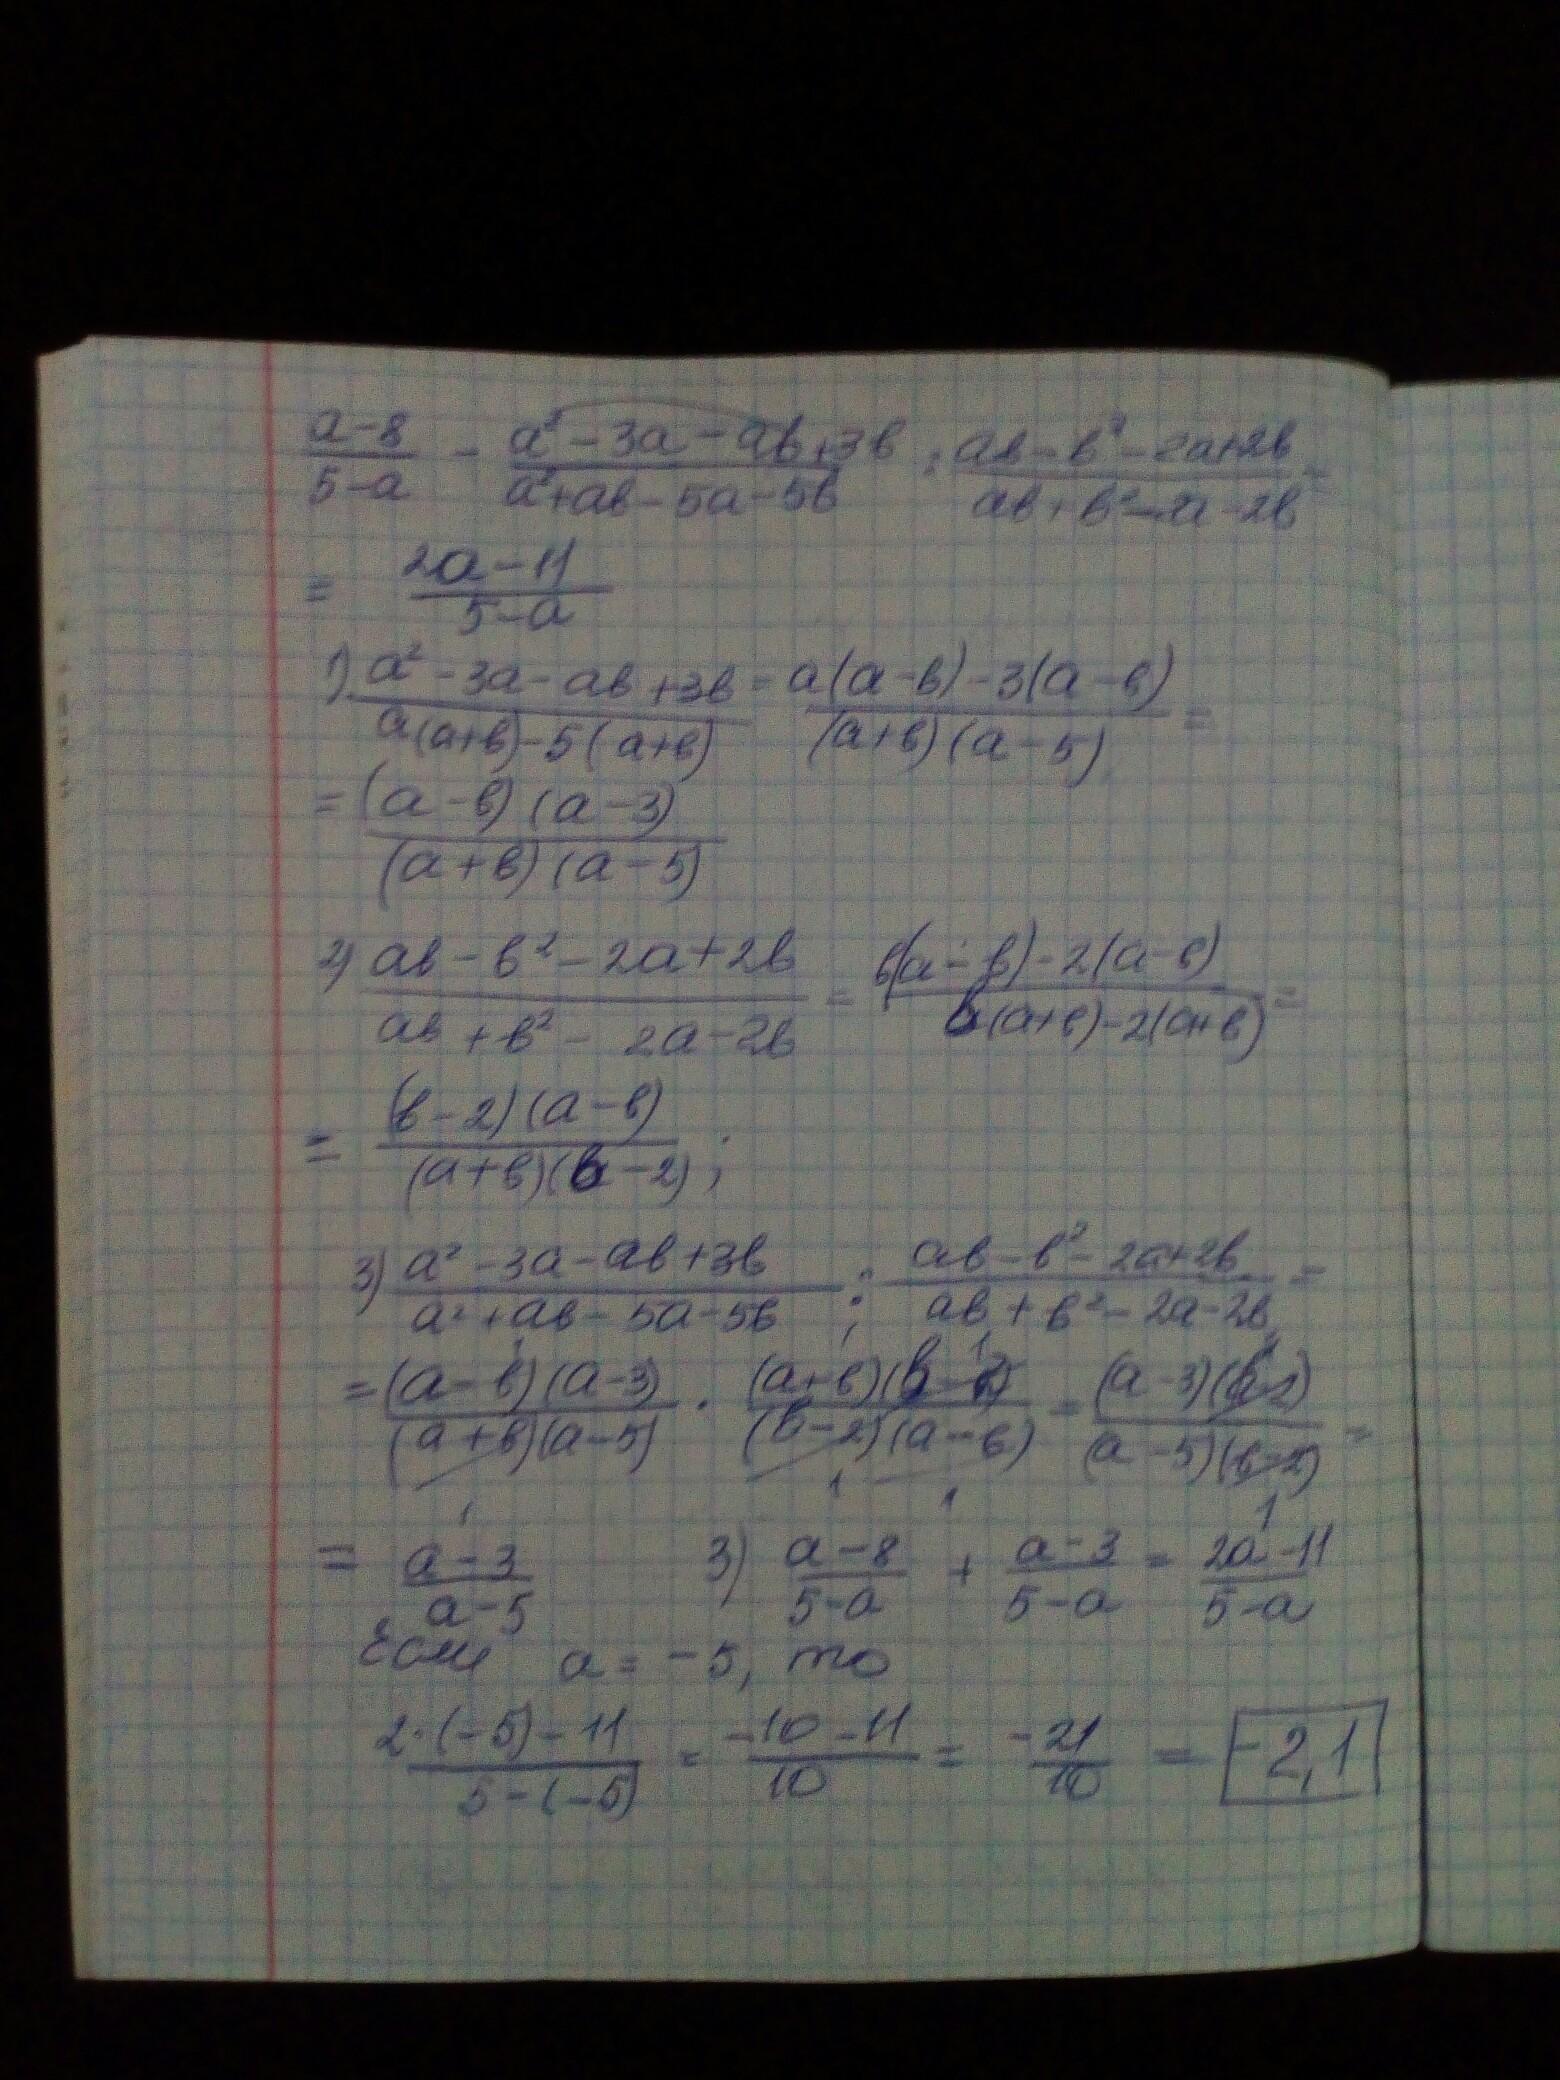 (a-8)/(5-a) - (a²-3a-ab+3b)/(a²+ab-5a-5b) : (ab-b²-2a+2b)/(ab+b²-2a-2b) =
= (2a-11)/(5-a)
1) (a²-3a-ab+3b)/(a(a+b)-5(a+b)) = (a(a-b)-3(a-b))/((a+b)(a-5)) =
= ((a-b)(a-3))/((a+b)(a-5))
2) (ab-b²-2a+2b)/(ab+b²-2a-2b) = (b(a-b)-2(a-b))/(b(a+b)-2(a+b)) =
= ((b-2)(a-b))/((a+b)(b-2));
3) (a²-3a-ab+3b)/(a²+ab-5a-5b) : (ab-b²-2a+2b)/(ab+b²-2a-2b) =
= ((a-b)(a-3))/((a+b)(a-5)) · ((a+b)(b-2))/((b-2)(a-b)) = ((a-3)(b-2))/((a-5)(b-2)) =
= (a-3)/(a-5) 3) (a-8)/(5-a) + (a-3)/(5-a) = (2a-11)/(5-a)
Если a = -5, то
(2·(-5)-11)/(5-(-5)) = (-10-11)/10 = -21/10 = -2,1